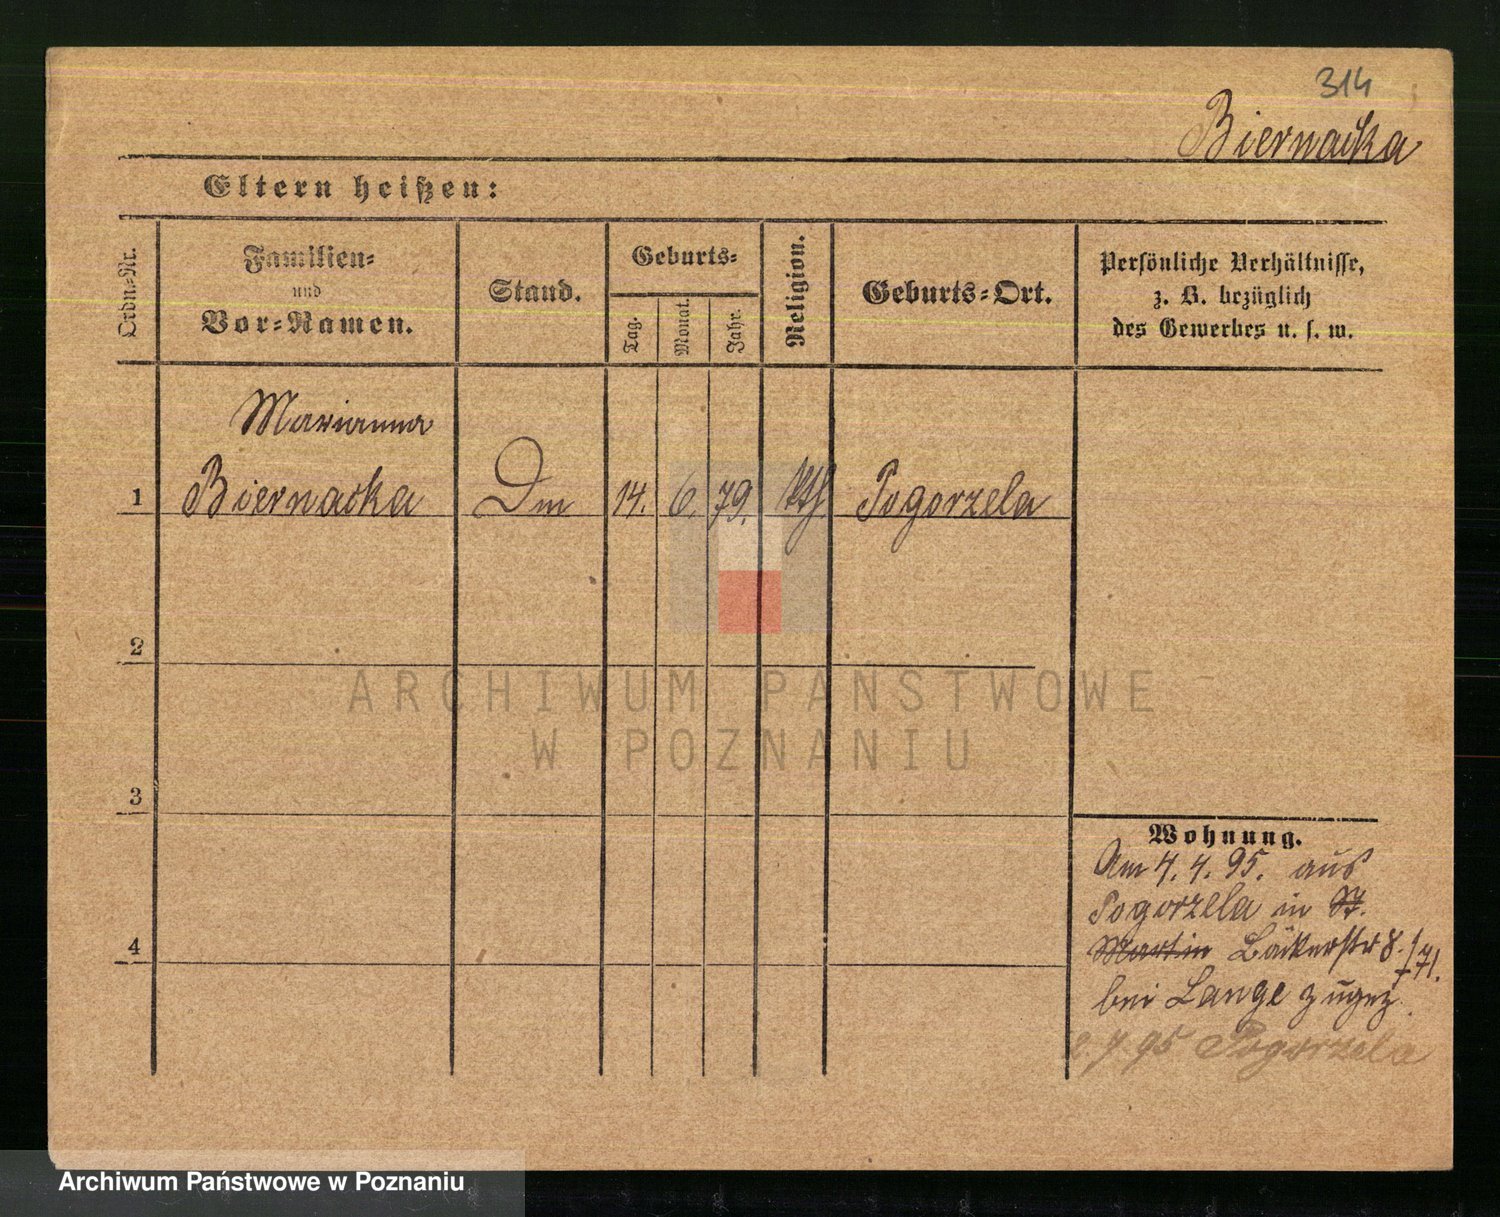 314
Biernacka
Eltern heißen:
Ordn.-Nr.
Familien-
und
Vor-Namen.
Stand.
Geburts-
Tag.
Monat.
Jahr.
Religion.
Geburts-Ort.
Persönliche Verhältnisse,
z. B. bezüglich
des Gewerbes u. s. w.
Marianna
1 Biernacka Dm 14. 6. 79. kth. Pogorzela
2
3
4
Wohnung.
Am 4. 4. 95. aus
Pogorzela in St.
Martin Bäckerstr 8. /71.
bei Lange zugez.
2. 7 95 Pogorzela
ARCHIWUM PAŃSTWOWE
W POZNANIU
Archiwum Państwowe w Poznaniu